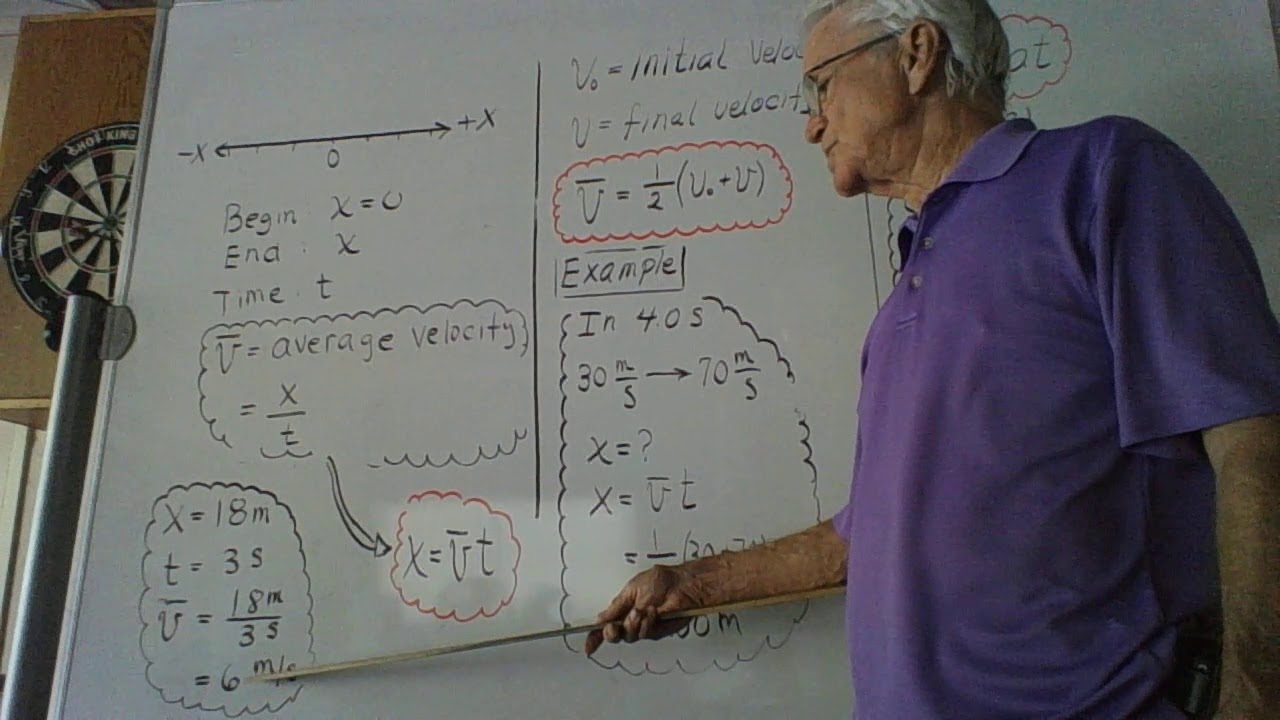 -X +X
0
Begin: X = 0
End: X
Time: t
V̅ = average velocity
= X/t
X = 18m
t = 3 s
V̅ = 18m/3s
= 6 m/s
X = V̅ t
V₀ = Initial
V = final velocity
at
V̅ = 1/2 (V₀ + V)
Example
In 4.0 s
30 m/s → 70 m/s
X = ?
X = V̅ t